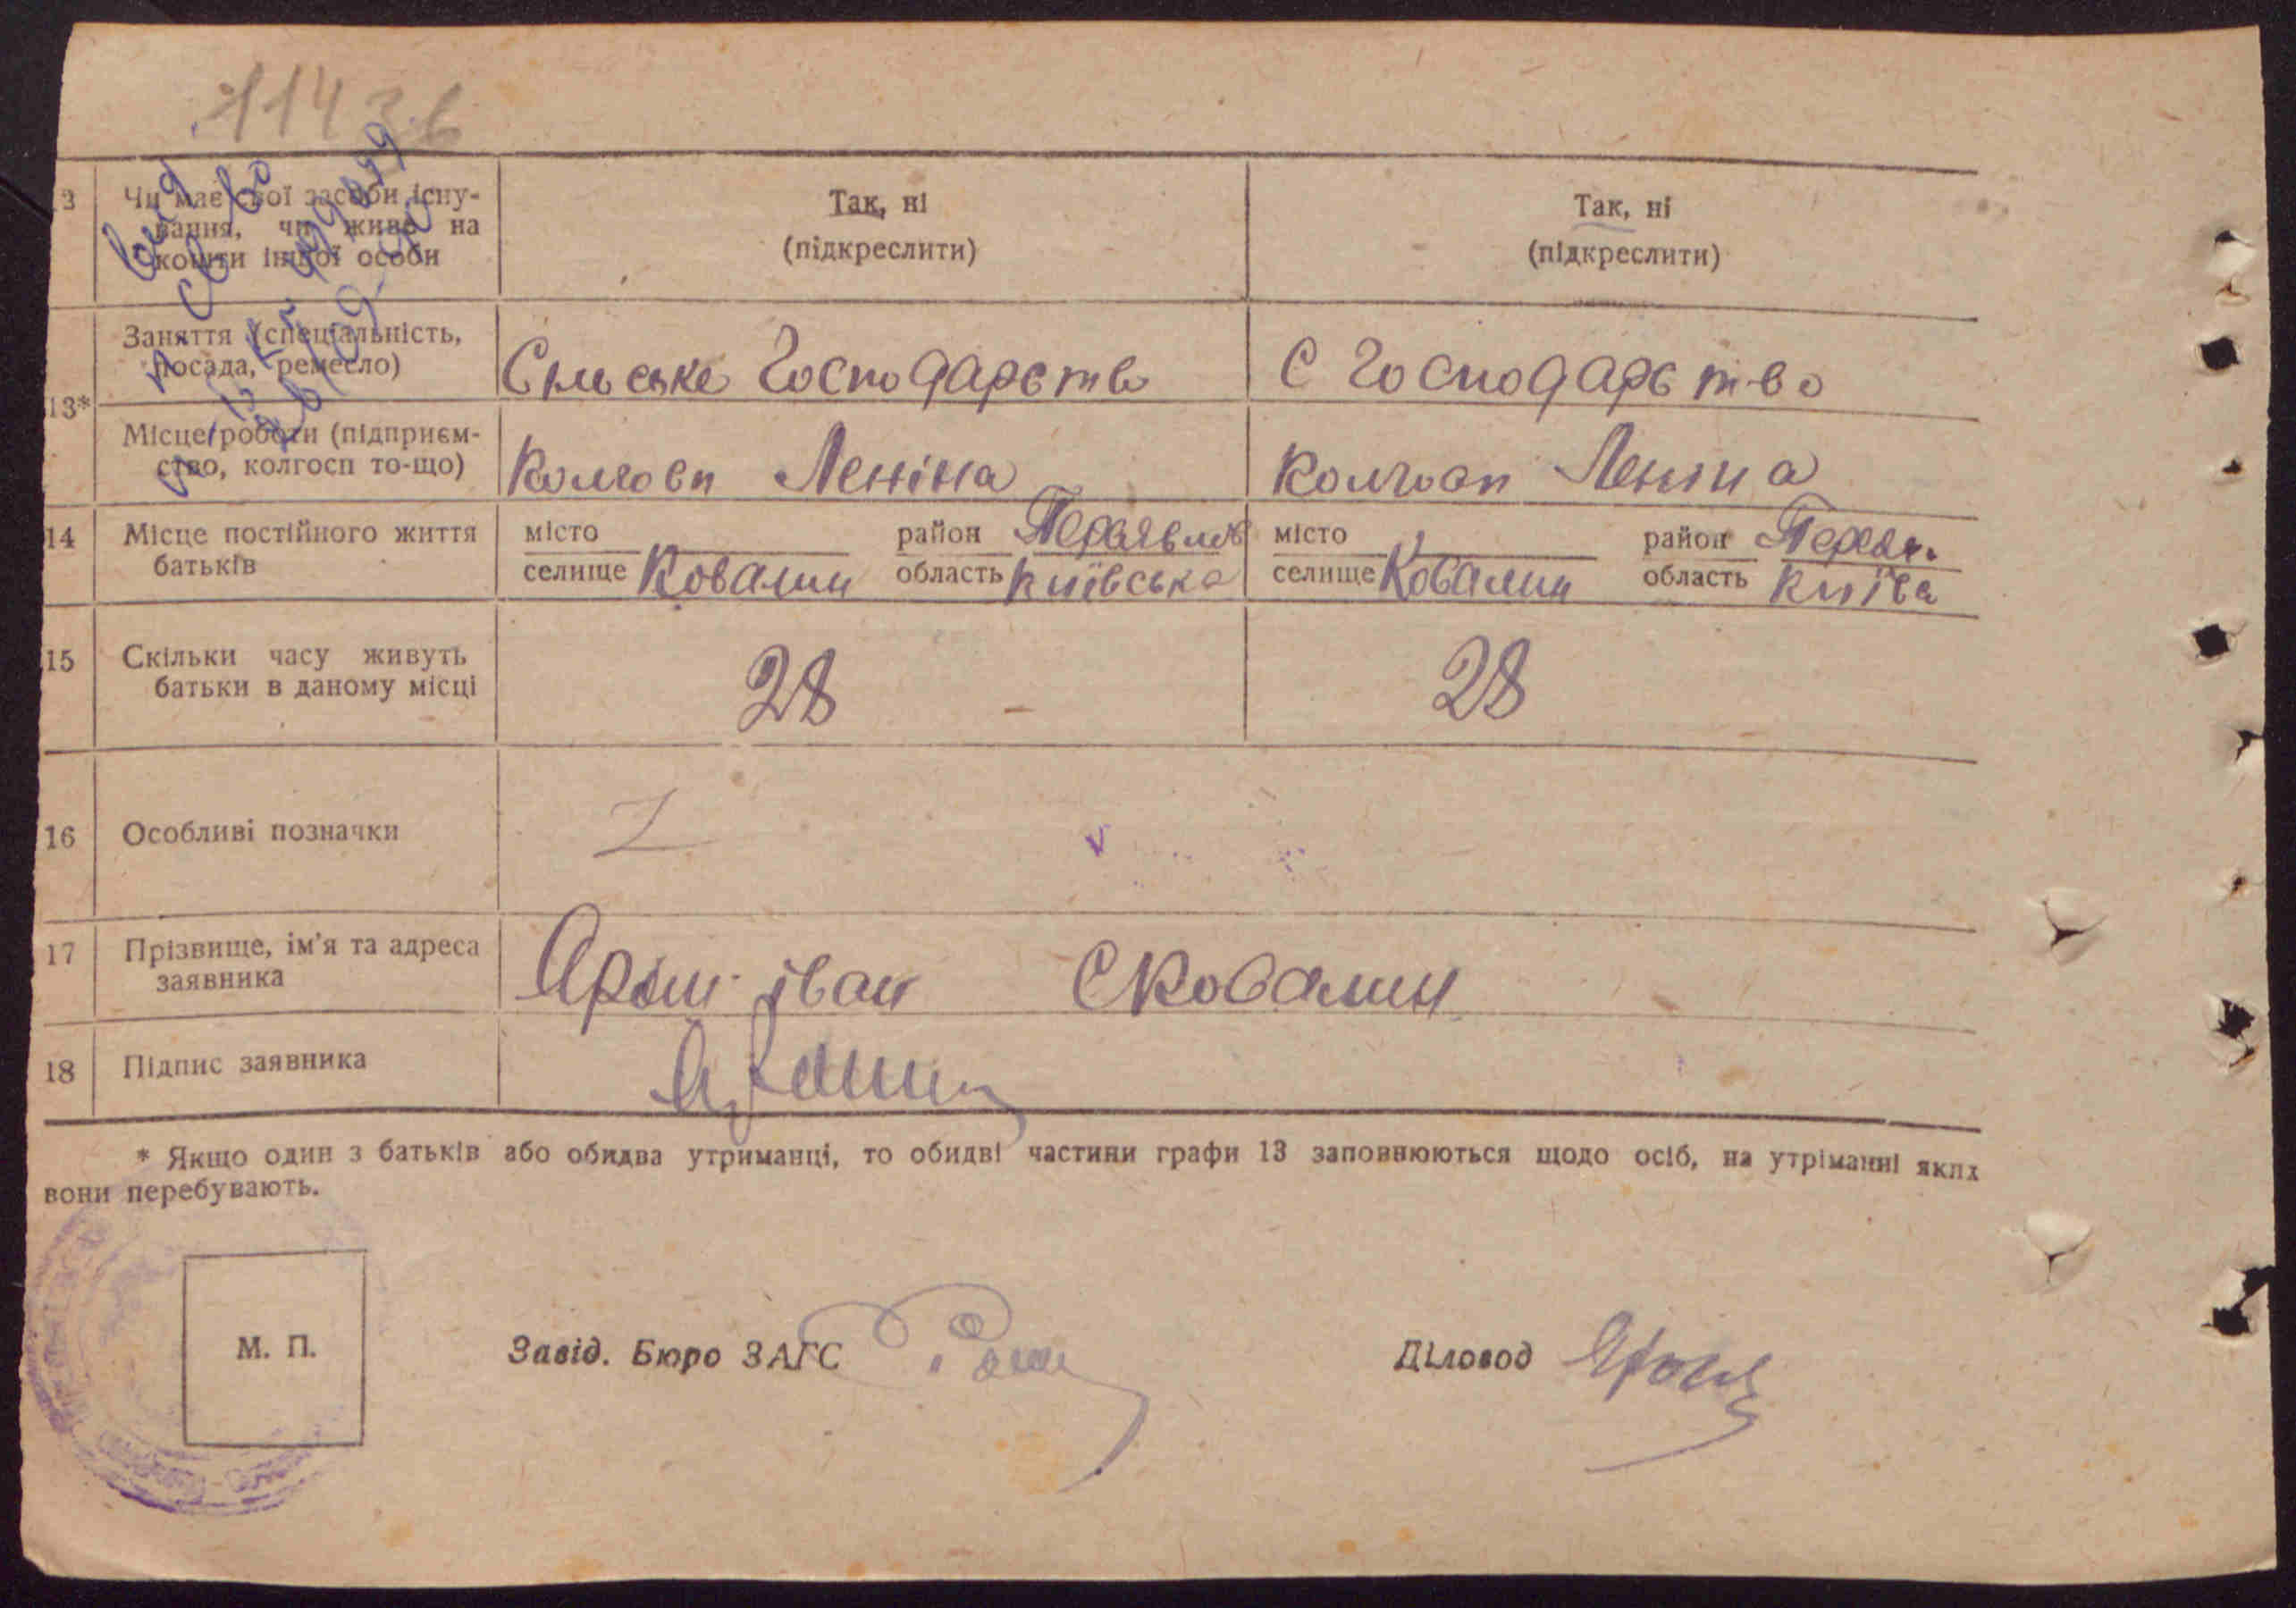 12 Чи має свої засоби існу-
вання, чи живе на
кошти іншої особи
Так, ні
(підкреслити)
Так, ні
(підкреслити)
13*
Заняття (спеціальність,
посада, ремесло)
Сильське Господарство
С Господарство
Місце роботи (підприєм-
ство, колгосп то-що)
Колгосп Леніна
Колгосп Леніна
14 Місце постійного життя
батьків
місто район Переяслав
селище Ковалин область Київська
місто район Переял.
селище Ковалин область Київа
15 Скільки часу живуть
батьки в даному місці
28
28
16 Особливі позначки
Z
V
17 Прізвище, ім'я та адреса
заявника
Іван С Ковалин
18 Підпис заявника
* Якщо один з батьків або обидва утриманці, то обидві частини графи 13 заповнюються щодо осіб, на утріманні яких
вони перебувають.
М. П.
Завід. Бюро ЗАГС
Діловод